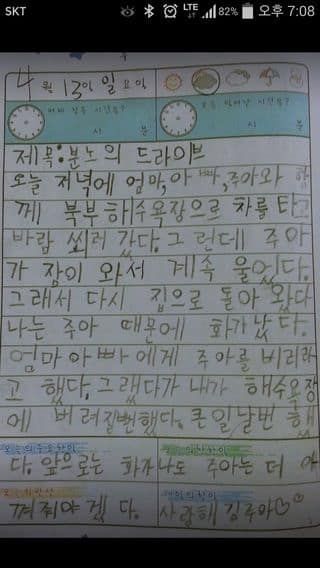 SKT LTE 82% 오후 7:08
4월 13일 일요일
시 분 시 분
제목:분노의 드라이브
오늘 저녁에 엄마,아빠,주아와 함
께 북부해수욕장으로 차를 타고
바람 쐬러 갔다.그런데 주아
가 잠이 와서 계속 울었다.
그래서 다시 집으로 돌아 왔다
나는 주아 때문에 화가났다.
엄마아빠에게 주아를 버리라
고 했다.그랬다가 내가 해수욕장
에 버려질뻔했다.큰일날번 했
오늘의 중요한 일 오늘의 착한 일
다.앞으로는 화가나도 주아는 더 아
오늘의 반성 내일의 할 일
껴줘야겠다. 사랑해 김주아♡